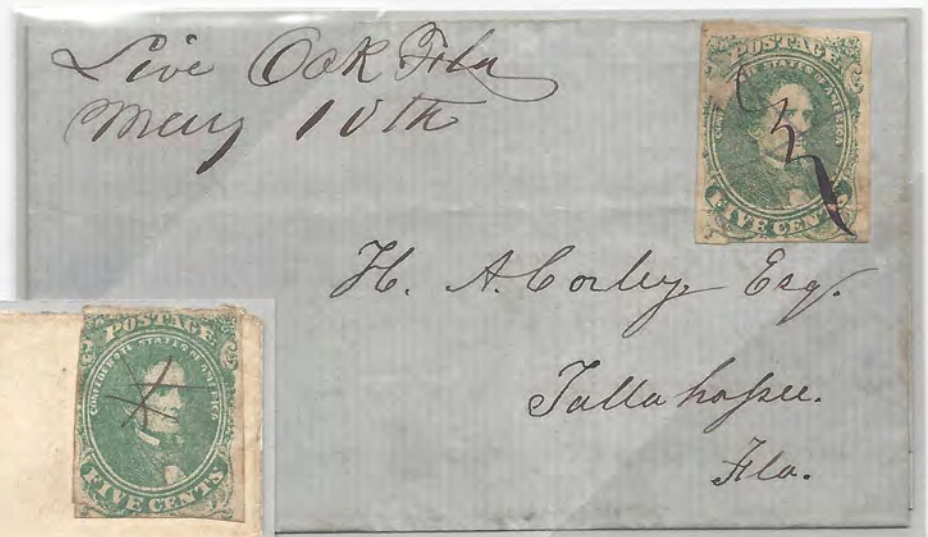 Live Oak Fla
May 10th
POSTAGE
CONFEDERATE STATES OF AMERICA
FIVE CENTS
H. A. Corley, Esq.
Tallahassee.
Fla.
POSTAGE
CONFEDERATE STATES OF AMERICA
FIVE CENTS